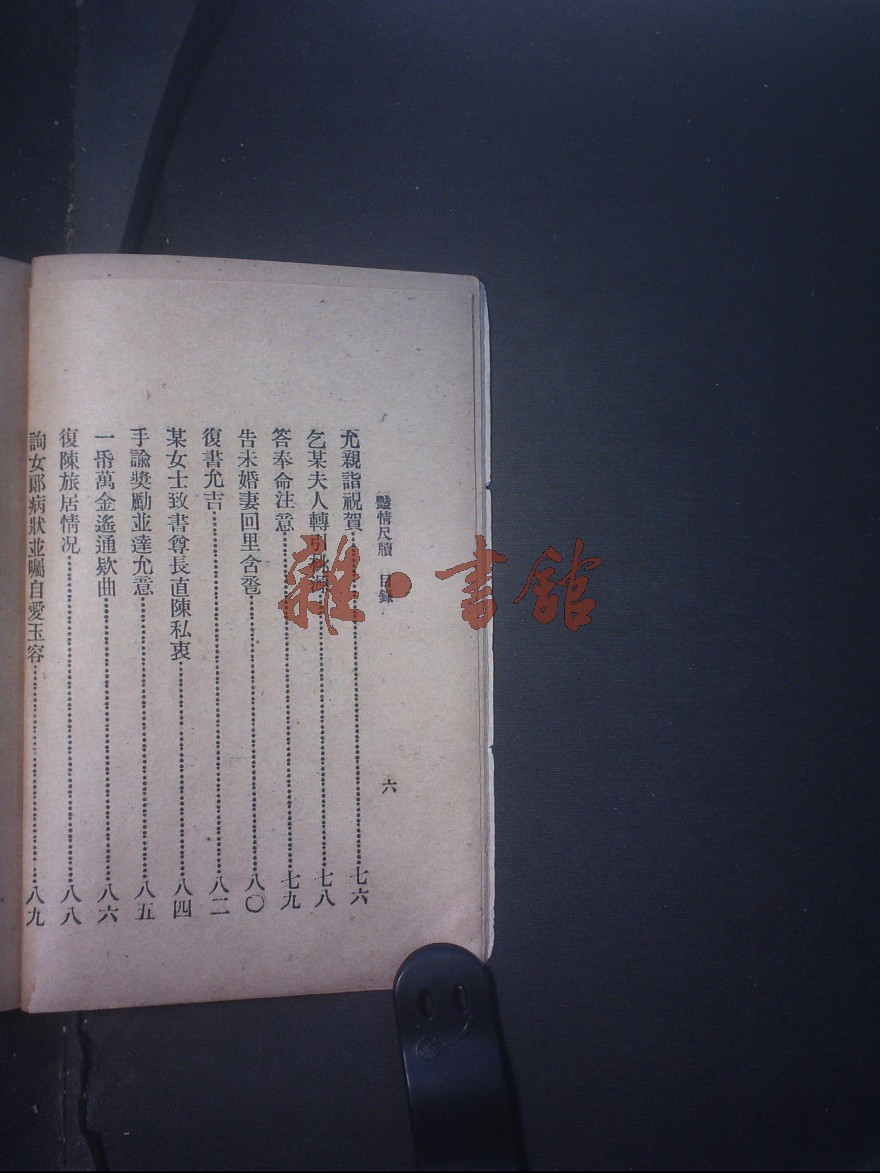 豔情尺牘 目錄 六
允親詣祝賀……七六
乞某夫人轉引桃源……七八
答奉命注意……七九
告未婚妻回里合巹……八〇
復書允吉……八二
某女士致書尊長直陳私衷……八四
手諭獎勵並達允意……八五
一番萬金遙通欵曲……八六
復陳旅居情况……八八
詢女郎病狀並囑自愛玉容……八九
雜·書館